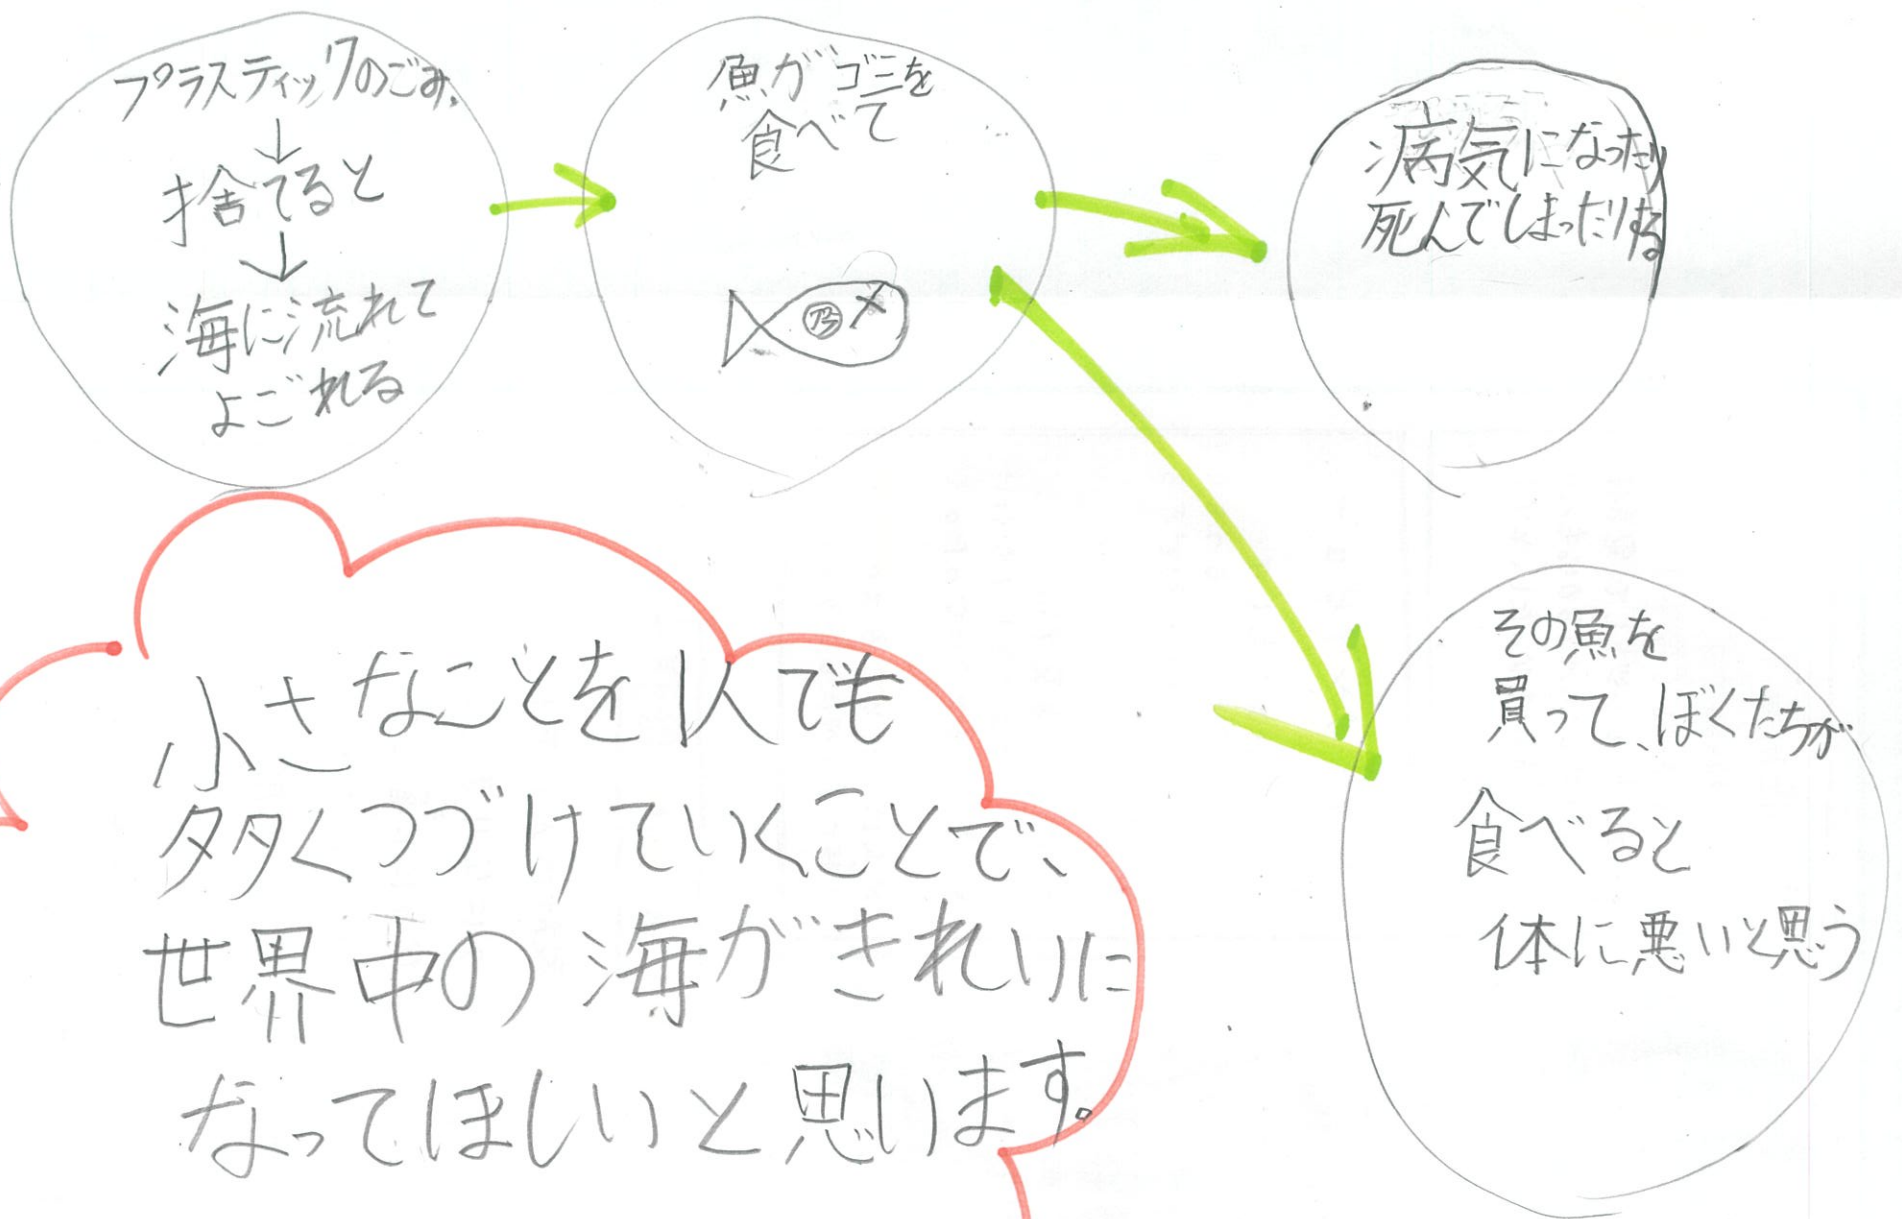 プラスティックのごみ。
↓
捨てると
↓
海に流れて
よごれる
魚がゴミを
食べて
病気になったり
死んでしまったりする
その魚を
買って、ぼくたちが
食べると
体に悪いと思う
小さなことを1人でも
多くつづけていくことで、
世界中の海がきれいに
なってほしいと思います。